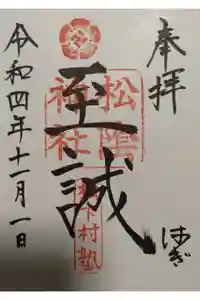 奉拝
はぎ
至誠
松陰神社
松下村塾
令和四年十一月一日